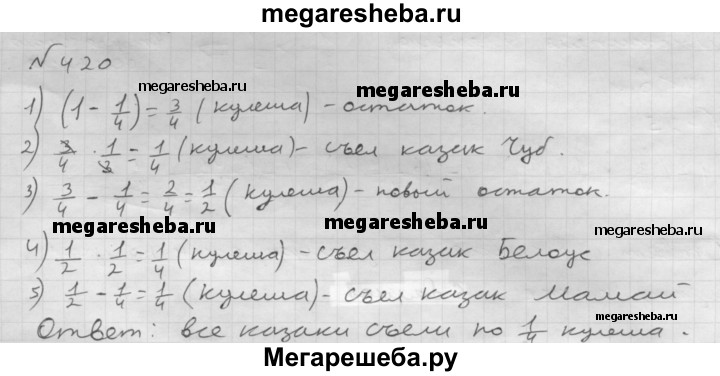 megaresheba.ru
№ 420
megaresheba.ru megaresheba.ru
1) (1 - 1/4) = 3/4 (кулеша) - остаток.
2) 3/4 · 1/3 = 1/4 (кулеша) - съел казак Чуб.
megaresheba.ru
3) 3/4 - 1/4 = 2/4 = 1/2 (кулеша) - новый остаток.
megaresheba.ru megaresheba.ru megaresheba.ru
4) 1/2 · 1/2 = 1/4 (кулеша) - съел казак Белоус
5) 1/2 - 1/4 = 1/4 (кулеша) - съел казак Мамай
Ответ: все казаки съели по 1/4 кулеша.
megaresheba.ru
Мегарешеба.ру